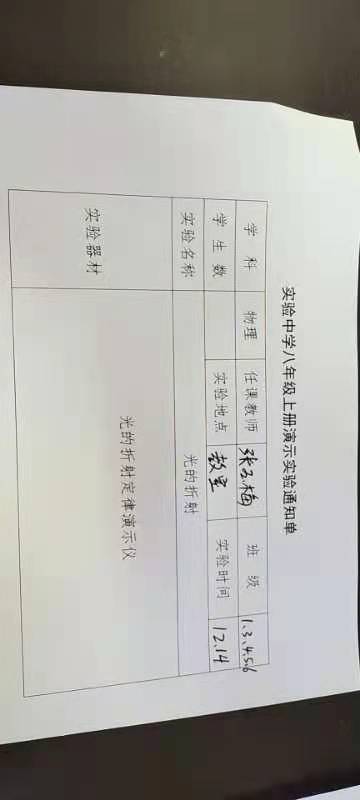 实验中学八年级上册演示实验通知单
学科 物理 任课教师 张玉梅 班级 1.3.4.5.6
学生数 实验地点 教室 实验时间 12.14
实验名称 光的折射
实验器材 光的折射定律演示仪